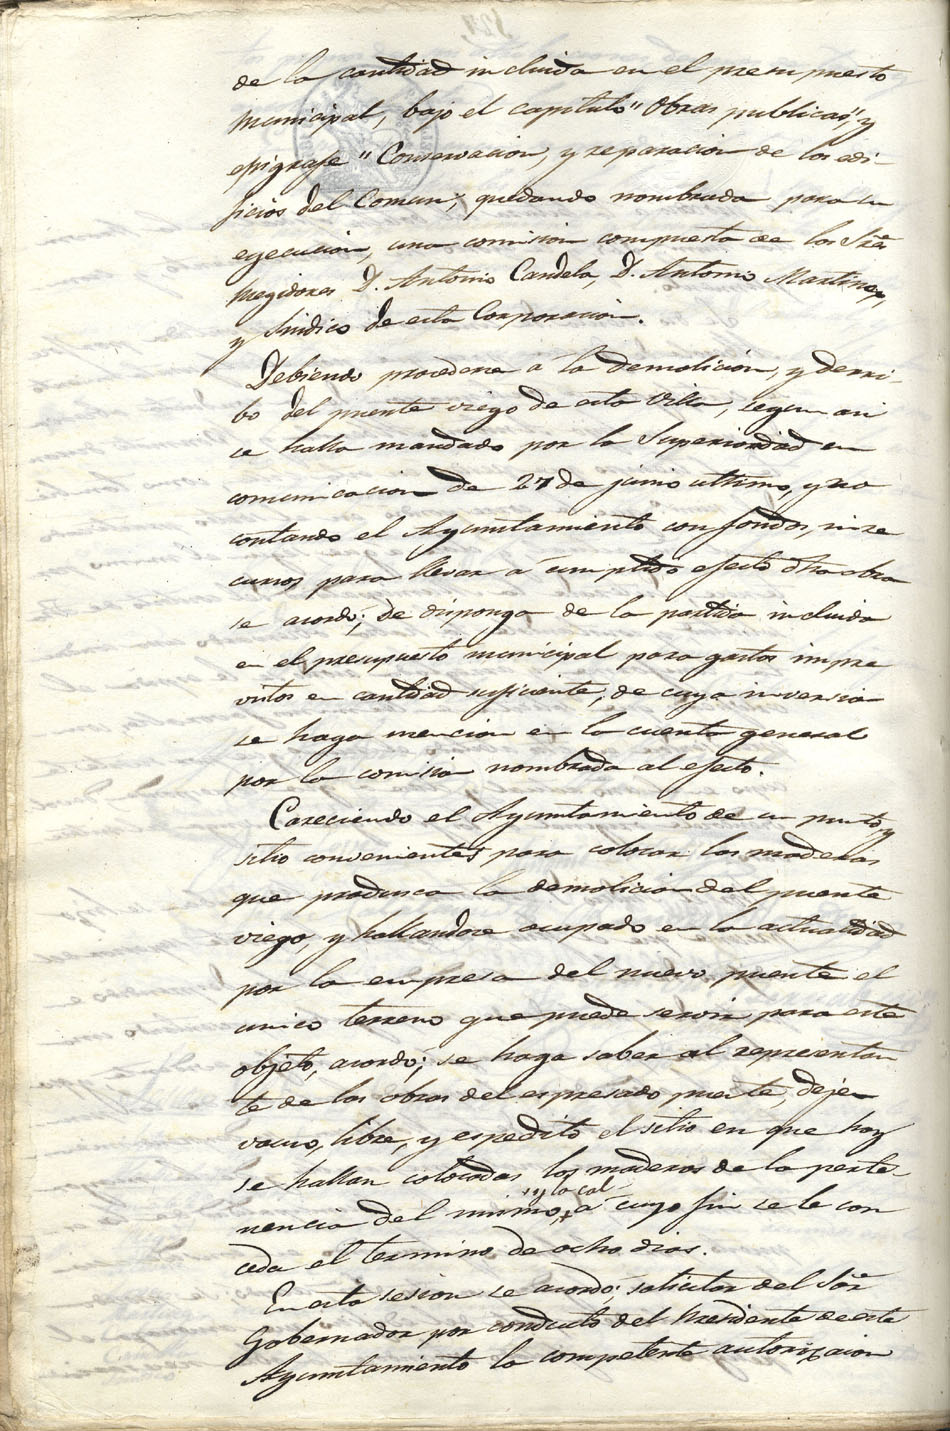 de la cantidad incluida en el presupuesto
municipal, bajo el capitulo "Obras publicas", y
epigrafe "Conservacion, y reparacion de los edi-
ficios del Comun", quedando nombrada para su
egecucion, una comision compuesta de los Sres
Regidores D. Antonio Candela, D. Antonio Martinez,
y Sindico de esta Corporacion.
Debiendo procederse á la demolicion, y derri-
bo del puente viego de esta Villa, segun asi
se halla mandado por la Superioridad en
comunicacion de 27 de junio ultimo, y no
contando el Ayuntamiento con fondos, ni re
cursos para llevar á cumplido efecto dha obra
se acordó; Se disponga de la partida incluida
en el presupuesto municipal para gastos impre
vistos en cantidad suficiente, de cuya inversion
se haga mencion en la cuenta general
por la comision nombrada al efecto.
Careciendo el Ayuntamiento de un punto y
sitio convenientes para colocar las maderas
que produsca la demolicion del puente
viego, y hallandose ocupado en la actualidad
por la empresa del nuevo puente el
unico terreno que puede servir para este
objeto, acordó; se haga saber al representan
te de las obras del espresado puente, deje
vacuo, libre, y espedito el sitio en que hoy
se hallan colocadas las maderas de la perte-
y la cal
nencia del mismo, á cuyo fin se le con
ceda el termino de ocho dias.
En esta sesion se acordó; solicitar del Sor
Gobernador por conducto del Presidente de este
Ayuntamiento la competente autorizacion